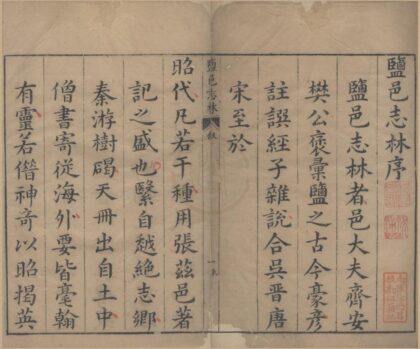 鹽邑志林序
鹽邑志林者邑大夫齊安
樊公裒彙鹽之古今豪彥
註譔經子雜說合吳晉唐
宋至於
鹽邑志林
敘
昭代凡若干種用張茲邑著
記之盛也繄自越絕志鄉
秦游樹碣天冊出自土中
僧書寄從海外要皆毫翰
有靈若僭神奇以昭揭英